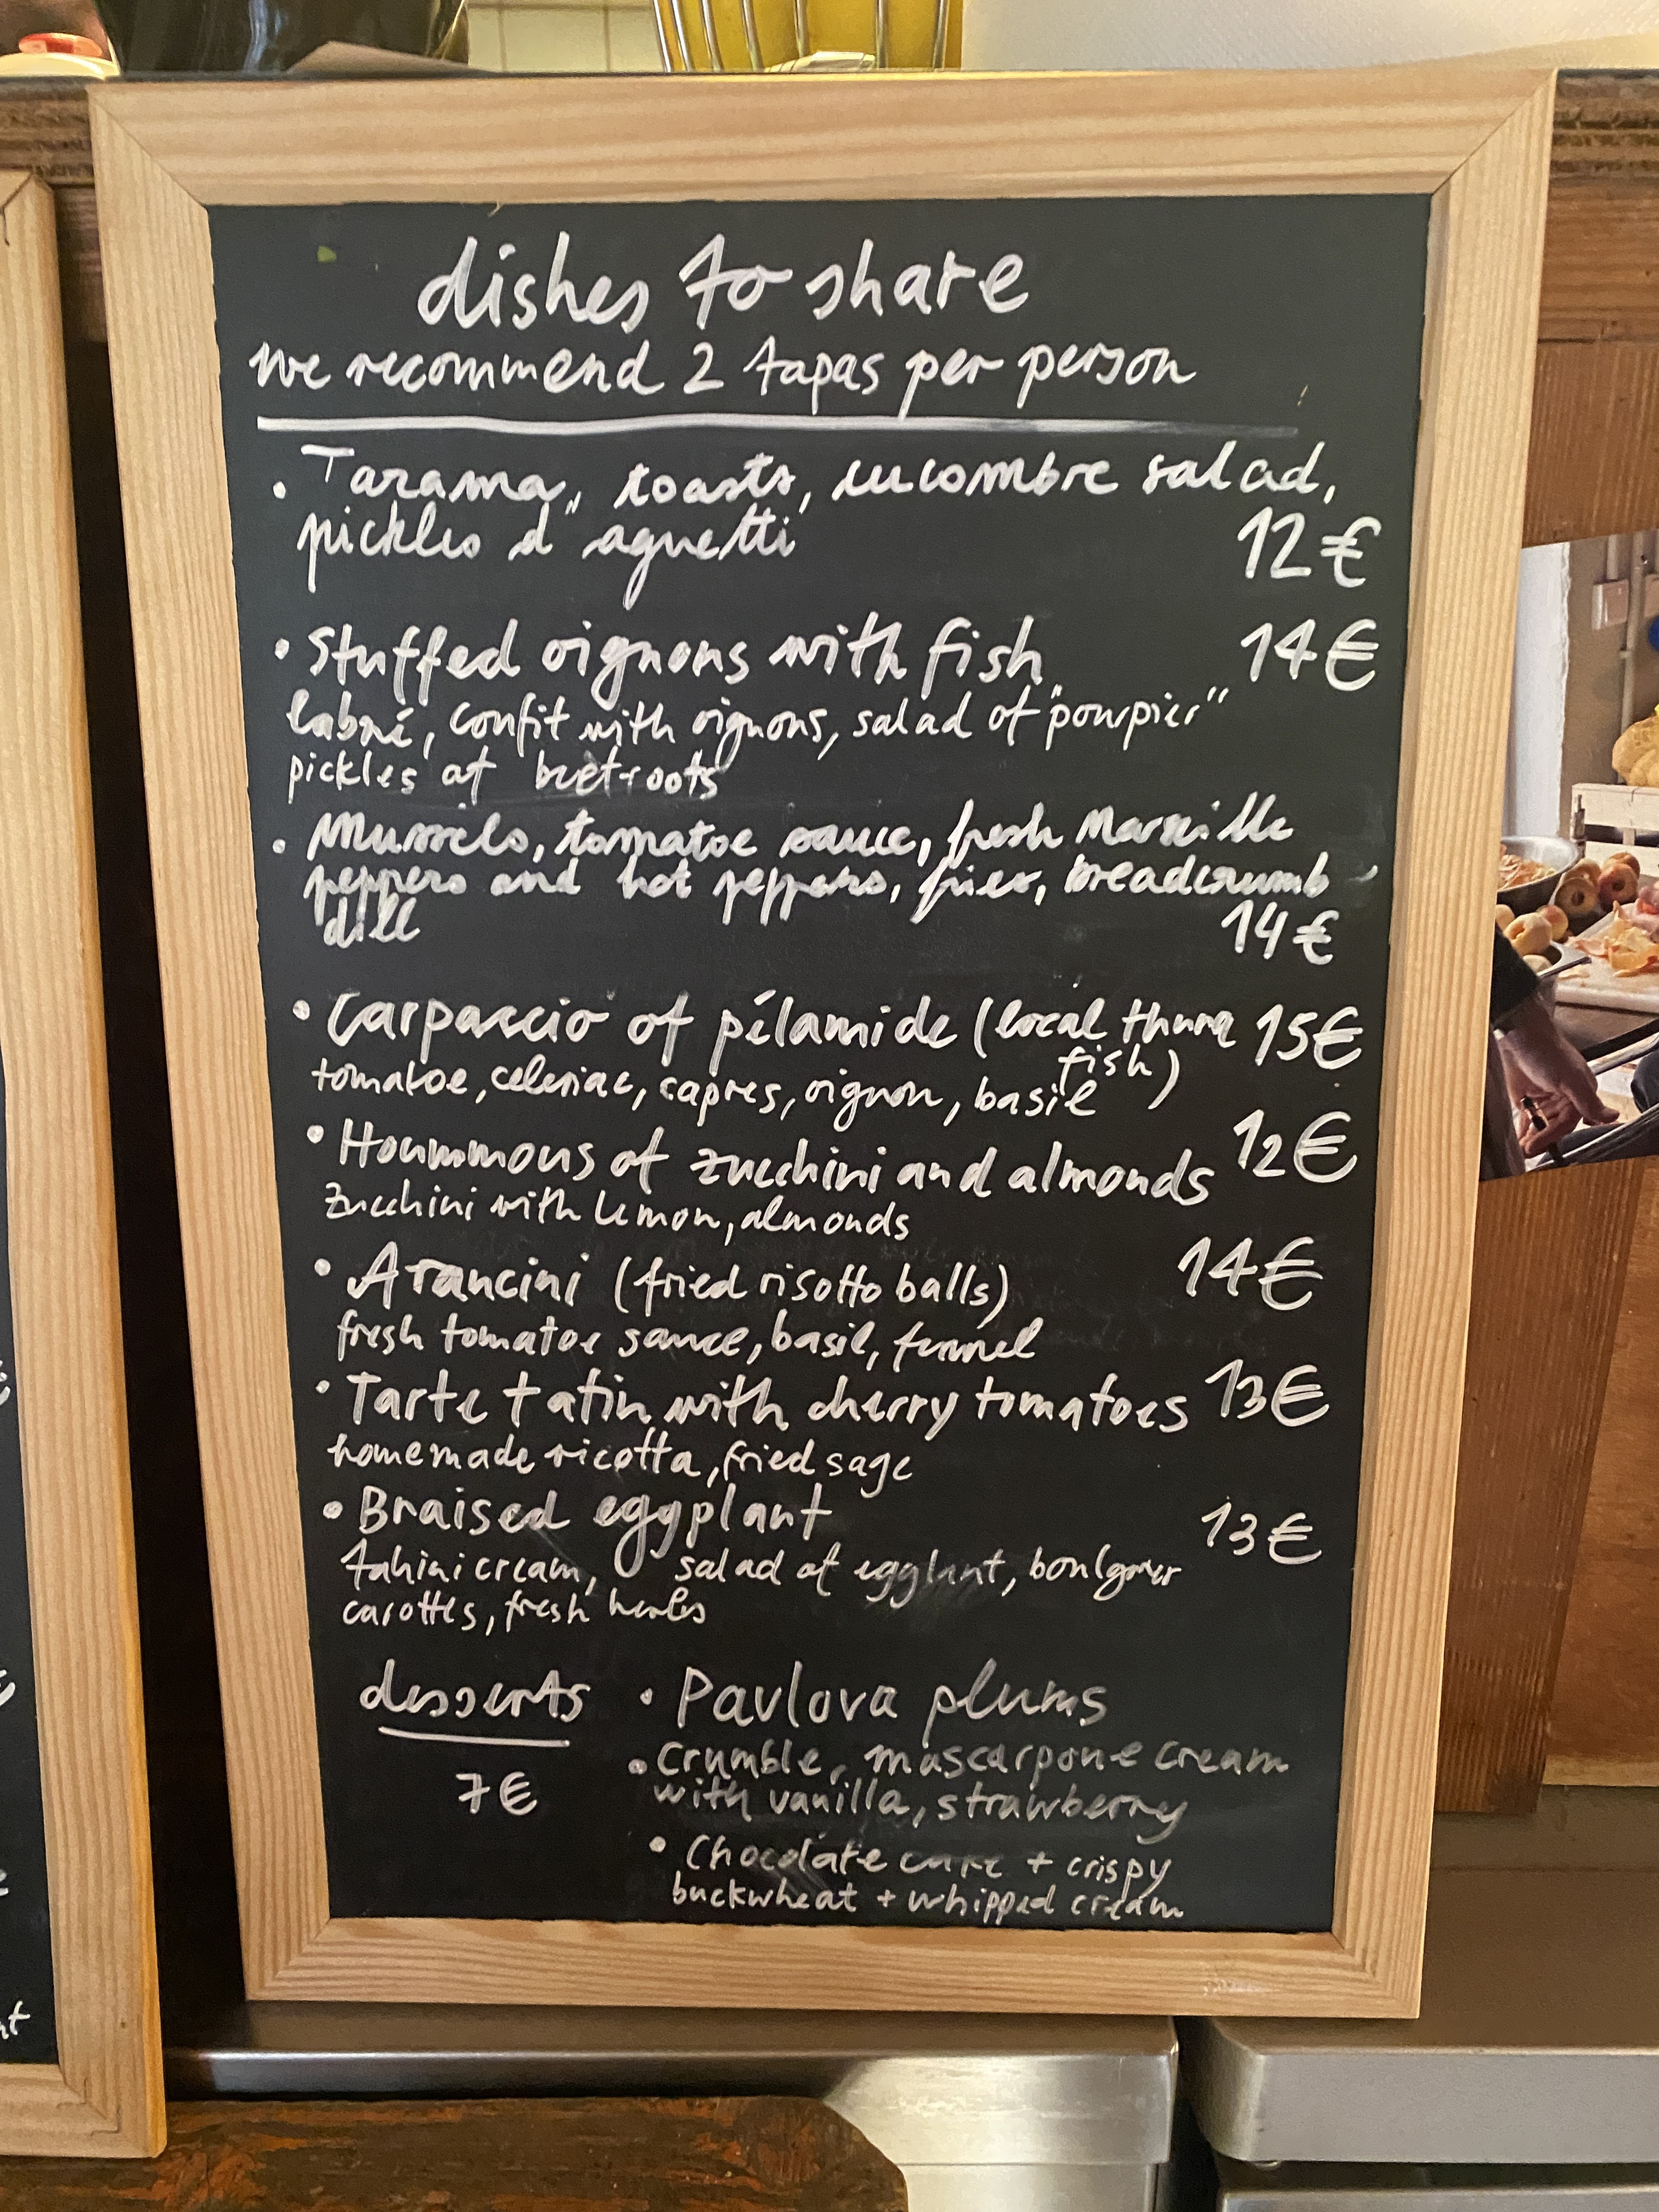 dishes to share
we recommend 2 tapas per person
• Tarama, toasts, cucombre salad,
pickles d "agnetti" 12€
• Stuffed oignons with fish 14€
labné, confit with oignons, salad of "pourpier"
pickles of beetroots
• Mussels, tomatoe sauce, fresh Marseille
peppers and hot peppers, fries, breadcrumb
dill 14€
• Carpaccio of pélamide (local thuna 15€
fish)
tomatoe, celeriac, capres, oignon, basil
• Hoummous of zucchini and almonds 12€
zucchini with lemon, almonds
• Arancini (fried risotto balls) 14€
fresh tomatoe sauce, basil, fennel
• Tarte tatin with cherry tomatoes 13€
homemade ricotta, fried sage
• Braised eggplant 13€
tahini cream, salad of egglant, boulgour
carottes, fresh herbs
desserts • Pavlova plums
• Crumble, mascarpone cream
7€ with vanilla, strawberry
• Chocolate cake + crispy
buckwheat + whipped cream